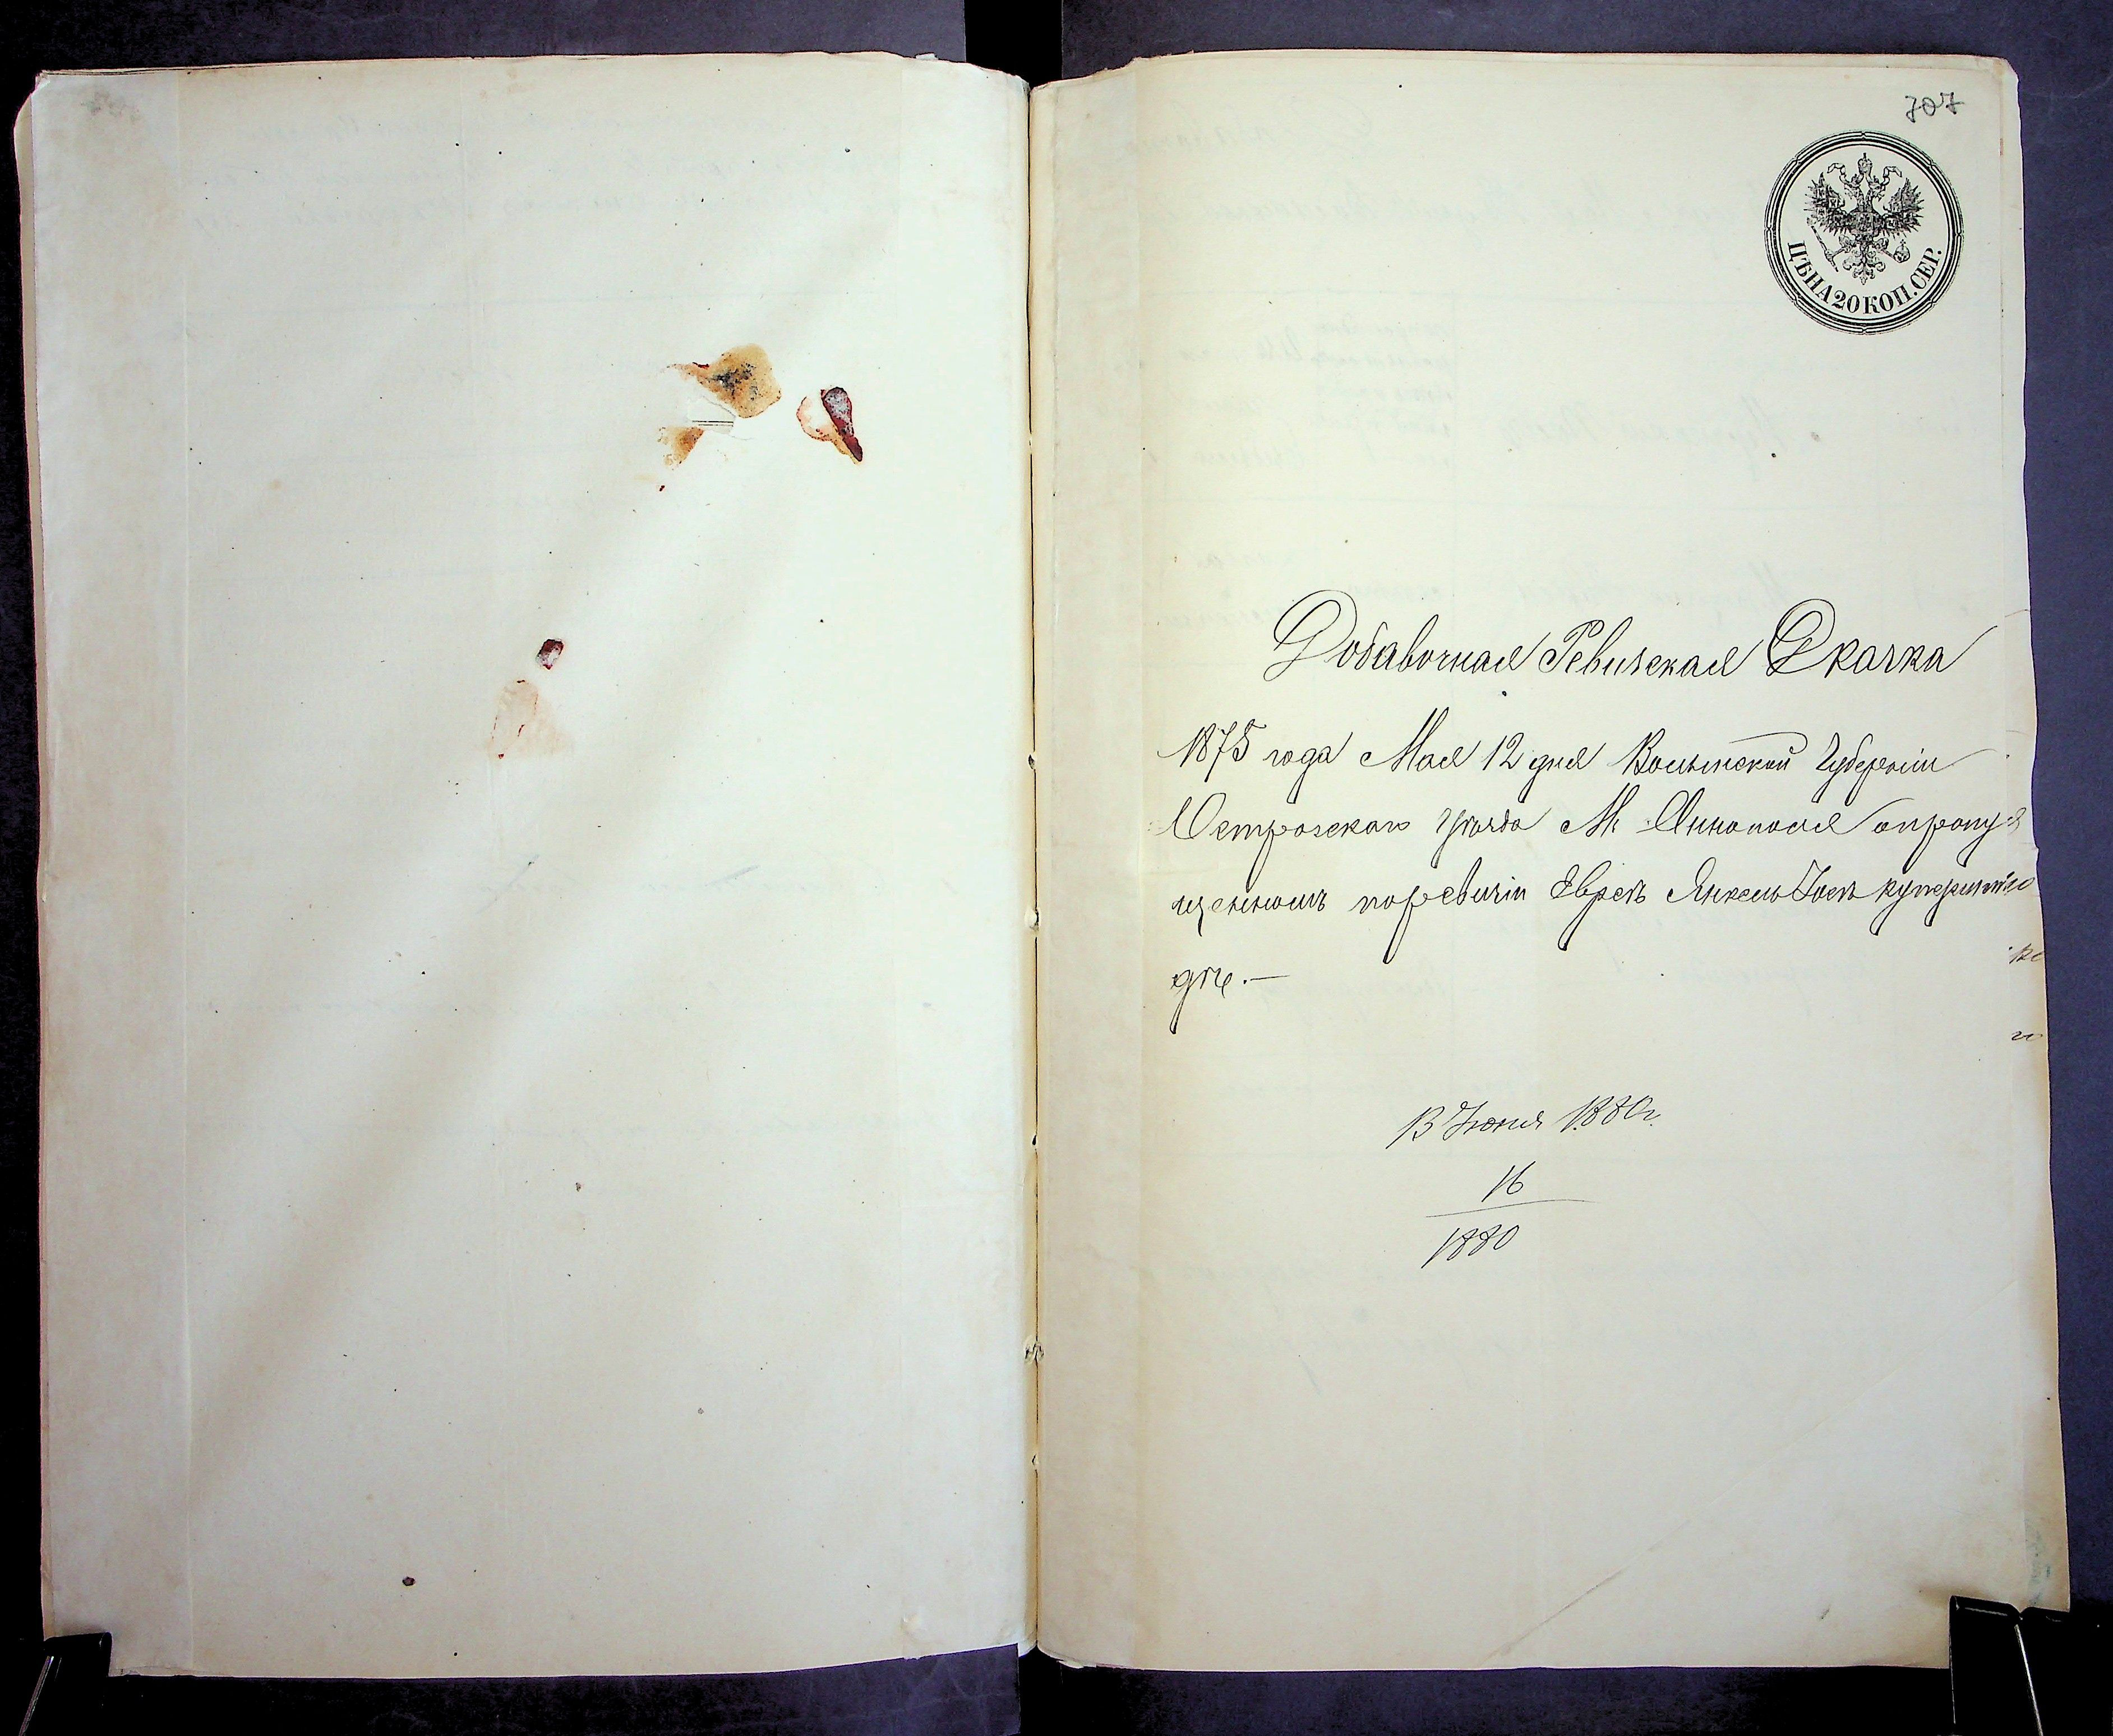 707
ЦѢНА 20 КОП. СЕР.
Добавочная Ревизская Сказка
1875 года Мая 12 дня Волынской Губерніи
Острожскаго уѣзда М. Аннополя о пропу-
щенномъ по ревизіи Евреѣ Янкель Іосѣ
дѣ.—
13 Іюня 1880 г.
16
1880